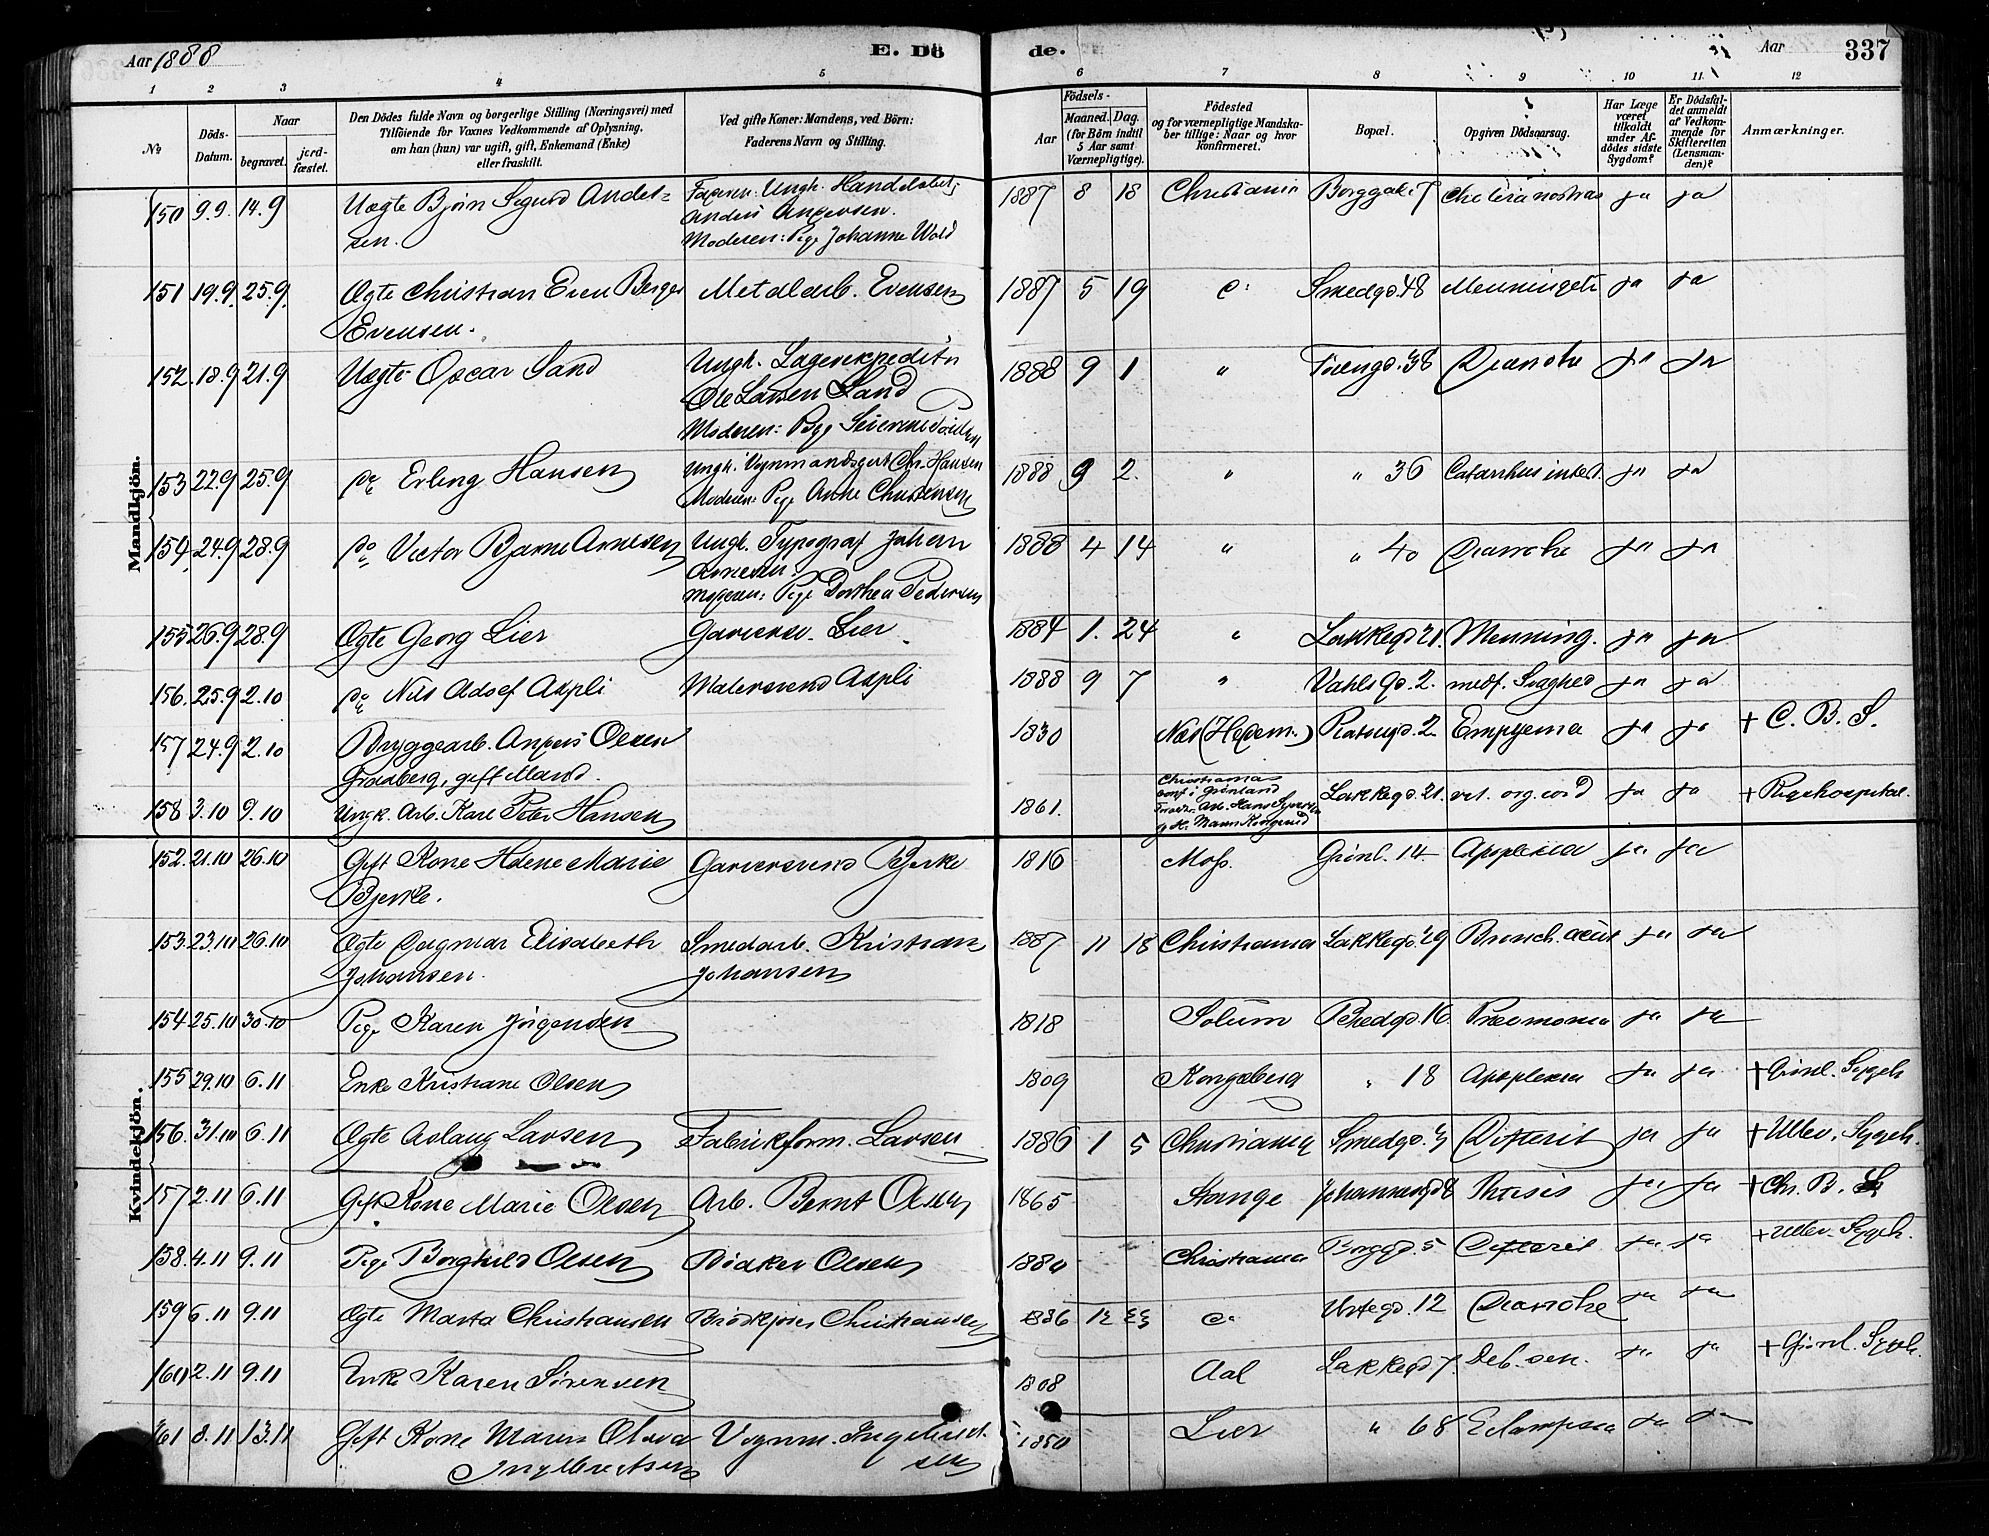 Aar 1888
E. Dö
de.
Aar
337
1 2 3 4 5 6 7 8 9 10 11 12
No
Döds-Datum.
Naar
begravet.
jord-fæstet.
Den Dödes fulde Navn og borgerlige Stilling (Næringsvei) med
Tilföiende for Voxnes Vedkommende af Oplysning,
om han (hun) var ugift, gift, Enkemand (Enke)
eller fraskilt.
Ved gifte Koner: Mandens, ved Börn:
Faderens Navn og Stilling.
Aar
Födsels-
Maaned. Dag.
(for Börn indtil
5 Aar samt
Værnepligtige).
Födested
og for værnepligtige Mandska-
ber tillige: Naar og hvor
konfirmeret.
Bopæl.
Opgiven Dödsaarsag.
Har Læge
været
tilkaldt
under Af-
dödes sidste
Sygdom?
Er Dödsfal-
det anmeldt
af Vedkom-
mende for
Skifteretten
(Lensman-
den)?
Anmærkninger.
Mandkjön.
150 9.9. 14.9 Uægte Björn Sigurd Ander- 1887 8 18 Christiania Borggade 7 Cholera nostras ja ja
sen.
Anders Andersen.
Moderen: Pige Johanne Wold
151 19.9. 25.9. Ægte Christian Even Berger Metalarb. Evensen 1887 5 19 Smedgd. 48 ja ja
Evensen.
152. 18.9 21.9 Uægte Oscar Sand Ungk. Lagerexpeditr 1888 9 1 " 38 Diarrohe ja ja
Ole Larsen Sand
Moderen: Pige
153 22.9 25.9 do Erling Hansen Ungk. Vognmandsgut Chr. Hansen 1888 9 2. " " 36 Catarrhus intest. ja ja
Moderen: Pige Anne Christensen
154 24.9 28.9 do Victor Bjarne Arnesen Ungk. Typograf Johan 1888 4 14 " " 40 Diarrohe ja ja
Arnesen.
Moderen: Pige Dorthea Pedersen
155 26.9 28.9 Ægte Georg Lier Lier 1884 1. 24 " Lakkegd. 21. Menning. ja ja
156. 25.9 2.10 do Nils Adolf Aspli Malersvend Aspli 1888 9 7 " Vahls Gd. 2. medf. Svaghed ja ja
157 24.9 2.10 Bryggearb. Anders Olsen 1830 Næs (Hedem.) 2 Empyema ja ja + C. B. S.
Graaberg, gift Mand.
158 3.10 9.10 Ungk. Arb. Karl Peter Hansen 1861. Christiania Lakkegd. 21. vit. org. cord ja ja + Rigshospital.
conf. i Grönland
Kvindekjön.
152. 21.10 26.10 Gift Kone Helene Marie Garversvend Bjerke 1816 Moss. Grönl. 14. Apoplexia ja ja
Bjerke.
153. 23.10 26.10 Ægte Dagmar Elisabeth Smedarb. Kristian 1887 11 18 Christiania Lakkegd. 29 Bronch. acut ja ja
Johansen. Johansen
154 25.10 30.10 Pige Karen Jörgensen 1818 Solum 16. Pneumonia ja ja
155 29.10 6.11 Enke Kristiane Olsen 1809 Kongsberg " 18 Apoplexia ja ja + Grönl. Sygeh.
156. 31.10 6.11 Ægte Aslaug Larsen Fabrikform. Larsen 1886 1 5 Christiania Smedgd. Difterit ja ja + Ullev. Sygeh.
157 2.11 6.11 Gift Kone Marie Olsen Arb. Bernt Olsen 1865 Stange Johannesgd 8 Phtisis ja ja + Chr. B. S.
158. 4.11 9.11 Pige Borghild Olsen Bödker Olsen 1880 Christiania Borggd. 5 Difterit ja ja + Ullev. Sygeh.
159 6.11 9.11 Ægte Marta Christiansen Brödkjörer Christiansen 1886 12 Urtegd. 12 Diarrohe ja ja
160 2.11 9.11 Enke Karen Sörensen 1808 Aal Lakkegd. 7. Deb. sen. ja ja + Grönl. Sygeh.
161 8.11 13.11 Gift Kone Maren Olava Vognm. Ingebret- 1850 Lier " 68 Eclampsia ja ja
Ingebretsen sen